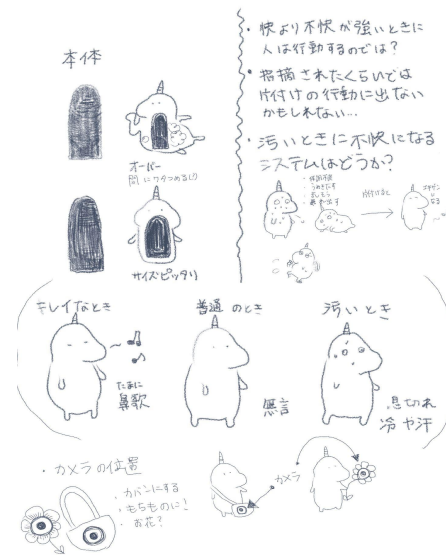 本体
オーバー
間にワタつめる(!)
サイズピッタリ
・快より不快が強いときに
人は行動するのでは?
・指摘されたくらいでは
片付けの行動に出ない
かもしれない…
・汚いときに不快になる
システムはどうか?
・体調不良
・うめきだす
片付けると
キレイなとき
たまに
鼻歌
普通のとき
無言
汚いとき
息切れ
冷や汗
・カメラの位置
・カバンにする
・もちものに!
・お花?
カメラ